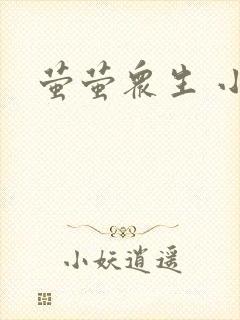 萤萤众生 小
小妖逍遥